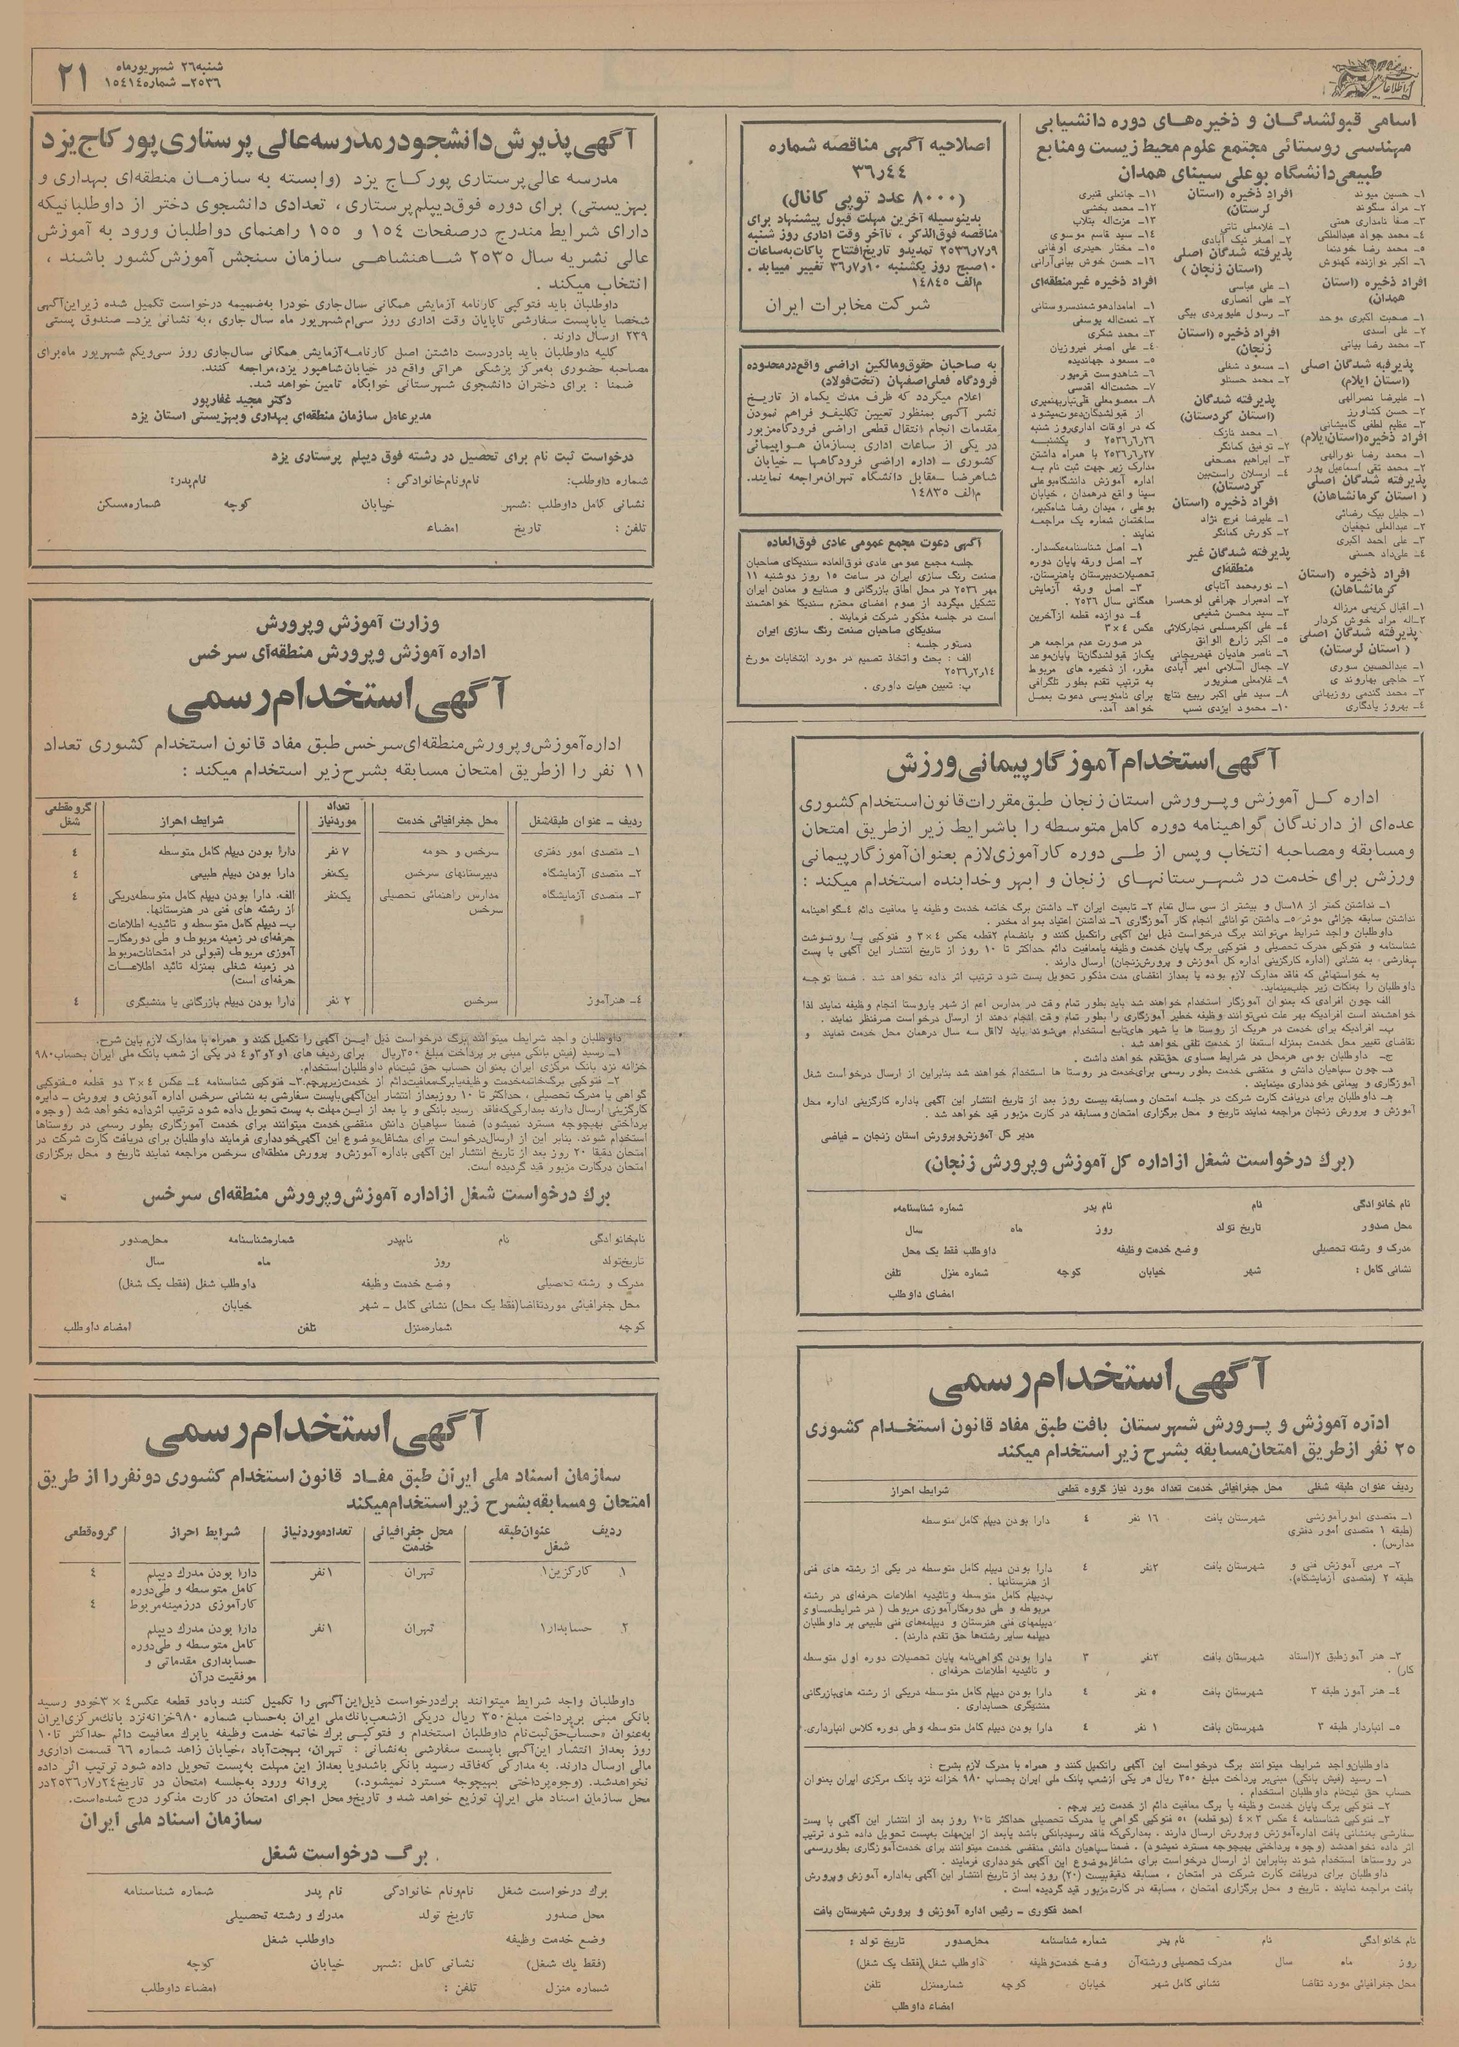 اطلاعات
شنبه ۲۶ شهریورماه
۲۵۳۶ـ شماره ۱۵۴۱۴
۲۱
اسامی قبولشدگان و ذخیره‌های دوره دانشیابی
مهندسی روستائی مجتمع علوم محیط زیست و منابع
طبیعی دانشگاه بوعلی سینای همدان
۱ـ حسین میوند
۲ـ مراد سگوند
۳ـ صفا نامداری همتی
۴ـ محمد جواد عبدالملکی
۵ـ محمد رضا خودنما
۶ـ اکبر نوازنده کهنوش
افراد ذخیره (استان
همدان)
۱ـ صحبت اکبری موحد
۲ـ علی اسدی
۳ـ محمد رضا بیاتی
پذیرفته شدگان اصلی
(استان ایلام)
۱ـ علیرضا نصرالهی
۲ـ حسن کشاورز
۳ـ عظیم لطفی گامیشانی
افراد ذخیره (استان ایلام)
۱ـ محمد رضا نورالهی
۲ـ محمد تقی اسماعیل پور
پذیرفته شدگان اصلی
(استان کرمانشاهان)
۱ـ جلیل بیک رضائی
۲ـ عبدالعلی نجفیان
۳ـ علی احمد اکبری
۴ـ علی‌داد حسنی
افراد ذخیره (استان
کرمانشاهان)
۱ـ اقبال کریمی مرزاله
۲ـ اله مراد خوش کردار
پذیرفته شدگان اصلی
(استان لرستان)
۱ـ عبدالحسین سوری
۲ـ حاجی بهاروند ی
۳ـ محمد گندمی روزبهانی
۴ـ بهروز یادگاری
افراد ذخیره (استان
لرستان)
۱ـ غلامعلی ثانی
۲ـ اصغر نیک آبادی
پذیرفته شدگان اصلی
(استان زنجان)
۱ـ علی عباسی
۲ـ علی انصاری
۳ـ رسول علیوردی بیگی
افراد ذخیره (استان
زنجان)
۱ـ مسعود شغلی
۲ـ محمد حسنلو
پذیرفته شدگان
(استان کردستان)
۱ـ محمد نازک
۲ـ توفیق کمانگر
۳ـ ابراهیم مصحفی
۴ـ ارسلان راست‌بین
کردستان)
افراد ذخیره (استان
۱ـ علیرضا فرج نژاد
۲ـ کورش کمانگر
پذیرفته شدگان غیر
منطقه‌ای
۱ـ نورمحمد آتابای
۲ـ ادمیرار چراغی لوحه‌سرا
۳ـ سید محسن شفیعی
۴ـ علی اکبرمسلمی نجارکلائی
۵ـ اکبر زارع الوانق
۶ـ ناصر هادیان قهدریجانی
۷ـ جمال اسلامی امیر آبادی
۹ـ غلامعلی صفرپور
۸ـ سید علی اکبر ربیع نتاج
۱۰ـ محمود ایزدی نسب
۱۱ـ جانعلی قنبری
۱۲ـ محمد بخشی
۱۳ـ عزت‌اله بتلاب
۱۴ـ سید قاسم موسوی
۱۵ـ مختار حیدری اوغانی
۱۶ـ حسن خوش بیانی‌آرانی
افراد ذخیره غیرمنطقه‌ای
۱ـ امامدادهوشمندسروستانی
۲ـ نعمت‌اله یوسفی
۳ـ محمد شکری
۴ـ علی اصغر فیروزیان
۵ـ مسعود جهاندیده
۶ـ شاهدوست قرمپور
۷ـ حشمت‌اله اقدسی
۸ـ معصومعلی قلی‌تباربهنمیری
از قبولشدگان‌دعوت‌میشود
که در اوقات اداری‌روز شنبه
۲۶ر۶ر۲۵۳۶ و یکشنبه
۲۷ر۶ر۲۵۳۶ با همراه داشتن
مدارک زیر جهت ثبت نام به
اداره آموزش دانشگاه‌بوعلی
سینا واقع درهمدان ، خیابان
بوعلی ، میدان رضا شاه‌کبیر،
ساختمان شماره یک مراجعه
نمایند .
۱ـ اصل شناسنامه‌عکسدار.
۲ـ اصل ورقه پایان دوره
تحصیلات‌دبیرستان یاهنرستان.
۳ـ اصل ورقه آزمایش
همگانی سال ۲۵۳۶ .
۴ـ دوازده قطعه ازآخرین
عکس ۴×۳
در صورت عدم مراجعه هر
یک‌از قبولشدگان‌تا پایان‌موعد
مقرر، از ذخیره های مربوط
به ترتیب تقدم بطور تلگرافی
برای نامنویسی دعوت بعمل
خواهد آمد.
اصلاحیه آگهی مناقصه شماره
۴۴ر۳۶
(۸۰۰۰ عدد توپی کانال)
بدینوسیله آخرین مهلت قبول پیشنهاد برای
مناقصه فوق‌الذکر ، تاآخر وقت اداری روز شنبه
۹ر۷ر۲۵۳۶ تمدیدو تاریخ‌افتتاح پاکات‌به‌ساعات
۱۰صبح روز یکشنبه ۱۰ر۷ر۳۶ تغییر مییابد .
م‌الف ۱۴۸۴۵
شرکت مخابرات ایران
به صاحبان حقوق‌ومالکین اراضی واقع‌درمحدوده
فرودگاه فعلی‌اصفهان (تخت‌فولاد)
اعلام میگردد که ظرف مدت یکماه از تاریخ
نشر آگهی بمنظور تعیین تکلیف‌و فراهم نمودن
مقدمات انجام انتقال قطعی اراضی فرودگاه‌مزبور
در یکی از ساعات اداری بسازمان هواپیمائی
کشوری ـ اداره اراضی فرودگاهها ـ خیابان
شاهرضا ـ مقابل دانشگاه تهران‌مراجعه نمایند.
م‌الف ۱۴۸۳۵
آگهی دعوت مجمع عمومی عادی فوق‌العاده
جلسه مجمع عمومی عادی فوق‌العاده سندیکای صاحبان
صنعت رنگ سازی ایران در ساعت ۱۵ روز دوشنبه ۱۱
مهر ۲۵۳۶ در محل اطاق بازرگانی و صنایع و معادن ایران
تشکیل میگردد از عموم اعضای محترم سندیکا خواهشمند
است در جلسه مذکور شرکت فرمایند .
سندیکای صاحبان صنعت رنگ سازی ایران
دستور جلسه :
الف : بحث واتخاذ تصمیم در مورد انتخابات مورخ
۱۴ر۲ر۲۵۳۶
ب: تعیین هیات داوری .
آگهی پذیرش دانشجو در مدرسه عالی پرستاری پورکاج یزد
مدرسه عالی پرستاری پورکاج یزد (وابسته به سازمان منطقه‌ای بهداری و
بهزیستی) برای دوره فوق‌دیپلم پرستاری ، تعدادی دانشجوی دختر از داوطلبانیکه
دارای شرایط مندرج درصفحات ۱۵۴ و ۱۵۵ راهنمای دواطلبان ورود به آموزش
عالی نشریه سال ۲۵۳۵ شاهنشاهی سازمان سنجش آموزش کشور باشند ،
انتخاب میکند .
داوطلبان باید فتوکپی کارنامه آزمایش همگانی سال‌جاری خودرا به‌ضمیمه درخواست تکمیل شده زیراین‌آگهی
شخصا یاباپست سفارشی تاپایان وقت اداری روز سی‌ام شهریور ماه سال جاری ، به نشانی یزدـ صندوق پستی
۲۳۹ ارسال دارند .
کلیه داوطلبان باید بادردست داشتن اصل کارنامه‌آزمایش همگانی سال‌جاری روز سی‌ویکم شهریور ماه‌برای
مصاحبه حضوری به‌مرکز پزشکی هراتی واقع در خیابان شاهپور یزد، مراجعه کنند.
ضمنا : برای دختران دانشجوی شهرستانی خوابگاه تامین خواهد شد.
دکتر مجید غفارپور
مدیرعامل سازمان منطقه‌ای بهداری وبهزیستی استان یزد
درخواست ثبت نام برای تحصیل در رشته فوق دیپلم پرستاری یزد
شماره داوطلب: نام‌ونام‌خانوادگی : نام‌پدر:
نشانی کامل داوطلب :شهر خیابان کوچه شماره‌مسکن
تلفن : تاریخ امضاء
وزارت آموزش وپرورش
اداره آموزش وپرورش منطقه‌ای سرخس
آگهی استخدام رسمی
اداره آموزش‌وپرورش‌منطقه‌ای‌سرخس طبق مفاد قانون استخدام کشوری تعداد
۱۱ نفر را ازطریق امتحان مسابقه بشرح زیر استخدام میکند :
ردیف ـ عنوان طبقه‌شغل محل جغرافیائی خدمت تعداد موردنیاز شرایط احراز گروه‌مقطعی شغل
۱ـ متصدی امور دفتری سرخس و حومه ۷ نفر دارا بودن دیپلم کامل متوسطه ۴
۲ـ متصدی آزمایشگاه دبیرستانهای سرخس یکنفر دارا بودن دیپلم طبیعی ۴
۳ـ متصدی آزمایشگاه مدارس راهنمائی تحصیلی یکنفر الف. دارا بودن دیپلم کامل متوسطه‌دریکی ۴
سرخس از رشته های فنی در هنرستانها.
ب‌ـ دیپلم کامل متوسطه و تائیدیه اطلاعات
حرفه‌ای در زمینه مربوط و طی دوره‌کارـ
آموزی مربوط (قبولی در امتحانات‌مربوط
در زمینه شغلی بمنزله تائید اطلاعات
حرفه‌ای است)
۴ـ هنرآموز سرخس ۲ نفر دارا بودن دیپلم بازرگانی یا منشیگری ۴
داوطلبان واجد شرایط میتوانند برگ درخواست ذیل این آگهی را تکمیل کنند و همراه با مدارک لازم باین شرح.
۱ـ رسید (فیش بانکی مبنی بر پرداخت مبلغ ۳۵۰ریال برای ردیف های ۱و۲و۳و۴ در یکی از شعب بانک ملی ایران بحساب ۹۸۰
خزانه نزد بانک مرکزی ایران بعنوان حساب حق ثبت‌نام داوطلبان استخدام.
۲ـ فتوکپی برگ‌خاتمه‌خدمت وظیفه‌یابرگ‌معافیت‌دائم از خدمت‌زیرپرچم.۳ـ فتوکپی شناسنامه ۴ـ عکس ۴×۳ دو قطعه ۵ـفتوکپی
گواهی یا مدرک تحصیلی ، حداکثر تا ۱۰ روزبعداز انتشار این‌آگهی‌باپست سفارشی به نشانی سرخس اداره آموزش و پرورش ـ دایره
کارگزینی ارسال دارند بمدارکی‌که‌فاقد رسید بانکی و یا بعد از این مهلت به پست تحویل داده شود ترتیب اثرداده نخواهد شد ( وجوه
پرداختی بهیچوجه مسترد نمیشود) ضمنا سپاهیان دانش منقضی خدمت میتوانند برای خدمت آموزگاری بطور رسمی در روستاها
استخدام شوند. بنابر این از ارسال‌درخواست برای مشاغل‌موضوع این آگهی‌خودداری فرمایند داوطلبان برای دریافت کارت شرکت در
امتحان دقیقا ۲۰ روز بعد از تاریخ انتشار این آگهی باداره آموزش‌و پرورش منطقه‌ای سرخس مراجعه نمایند تاریخ و محل برگزاری
امتحان درکارت مزبور قید گردیده است.
برگ درخواست شغل ازاداره آموزش‌وپرورش منطقه‌ای سرخس
نام‌خانوادگی نام نام‌پدر شماره‌شناسنامه محل‌صدور
تاریخ‌تولد روز ماه سال
مدرک و رشته تحصیلی وضع خدمت وظیفه داوطلب شغل (فقط یک شغل)
محل جغرافیائی موردتقاضا(فقط یک محل) نشانی کامل ـ شهر خیابان
کوچه شماره‌منزل تلفن امضاء داوطلب
آگهی استخدام آموزگار پیمانی ورزش
اداره کل آموزش وپرورش استان زنجان طبق‌مقررات‌قانون‌استخدام‌کشوری
عده‌ای از دارندگان گواهینامه دوره کامل متوسطه را باشرایط زیر ازطریق امتحان
ومسابقه ومصاحبه انتخاب وپس از طی دوره کارآموزی‌لازم بعنوان‌آموزگارپیمانی
ورزش برای خدمت در شهرستانهای زنجان و ابهر وخدابنده استخدام میکند :
۱ـ نداشتن کمتر از ۱۸سال و بیشتر از سی سال تمام ۲ـ تابعیت ایران ۳ـ داشتن برگ خاتمه خدمت وظیفه یا معافیت دائم ۴ـگواهینامه
نداشتن سابقه جزائی موثر ۵ـ داشتن توانائی انجام کار آموزگاری ۶ـ نداشتن اعتیاد بمواد مخدر.
داوطلبان واجد شرایط می‌توانند برگ درخواست ذیل این آگهی راتکمیل کنند و بانضمام ۲قطعه عکس ۴×۳ و فتوکپی یا رونوشت
شناسنامه و فتوکپی مدرک تحصیلی و فتوکپی برگ پایان خدمت وظیفه یامعافیت دائم حداکثر تا ۱۰ روز از تاریخ انتشار این آگهی با پست
سفارشی به نشانی (اداره کارگزینی اداره کل آموزش و پرورش‌زنجان) ارسال دارند .
به خواستهائی که فاقد مدارک لازم بوده یا بعداز انقضای مدت مذکور تحویل پست شود ترتیب اثر داده نخواهد شد . ضمنا توجه
داوطلبان را بنکات زیر جلب‌مینماید.
الف چون افرادی که بعنوان آموزگار استخدام خواهند شد باید بطور تمام وقت در مدارس اعم از شهر یاروستا انجام وظیفه نمایند لذا
خواهشمند است افرادیکه بهر علت نمی‌توانند وظیفه خطیر آموزگاری را بطور تمام وقت انجام دهند از ارسال درخواست صرفنظر نمایند .
ب‌ـ افرادیکه برای خدمت در هریک از روستا ها یا شهر های‌تابع استخدام می‌شوند باید لااقل سه سال درهمان محل خدمت نمایند و
تقاضای تغییر محل خدمت بمنزله استعفا از خدمت تلقی خواهد شد .
ج‌ـ داوطلبان بومی هرمحل در شرایط مساوی حق‌تقدم خواهند داشت .
دـ چون سپاهیان دانش و منقضی خدمت بطور رسمی برای‌خدمت در روستا ها استخدام خواهند شد بنابراین از ارسال درخواست شغل
آموزگاری و پیمانی خودداری مینمایند .
هـ داوطلبان برای دریافت کارت شرکت در جلسه امتحان ومسابقه بیست روز بعد از تاریخ انتشار این آگهی باداره کارگزینی اداره محل
آموزش و پرورش زنجان مراجعه نمایند تاریخ و محل برگزاری امتحان ومسابقه در کارت مزبور قید خواهد شد .
مدیر کل آموزش‌وپرورش استان زنجان ـ فیاضی
(برگ درخواست شغل ازاداره کل آموزش وپرورش زنجان)
نام خانوادگی نام نام پدر شماره شناسنامه
محل صدور تاریخ تولد روز ماه سال
مدرک و رشته تحصیلی وضع خدمت وظیفه داوطلب فقط یک محل
نشانی کامل : شهر خیابان کوچه شماره منزل تلفن
امضای داوطلب
آگهی استخدام رسمی
اداره آموزش و پرورش شهرستان بافت طبق مفاد قانون استخدام کشوری
۲۵ نفر ازطریق امتحان‌مسابقه بشرح زیر استخدام میکند
ردیف عنوان طبقه شغلی محل جغرافیائی خدمت تعداد مورد نیاز گروه قطعی شرایط احراز
۱ـ متصدی امورآموزشی شهرستان بافت ۱۶ نفر ۴ دارا بودن دیپلم کامل متوسطه
(طبقه ۱ متصدی امور دفتری
مدارس) .
۲ـ مربی آموزش فنی و شهرستان بافت ۲نفر ۴ دارا بودن دیپلم کامل متوسطه در یکی از رشته های فنی
طبقه ۲ (متصدی آزمایشگاه). از هنرستانها .
ب‌دیپلم کامل متوسطه وتائیدیه اطلاعات حرفه‌ای در رشته
مربوطه و طی دوره‌کارآموزی مربوط ( در شرایط‌مساوی
دیپلمهای فنی هنرستان و دیپلمه‌های فنی طبیعی بر داوطلبان
دیپلمه سایر رشته‌ها حق تقدم دارند) .
۳ـ هنر آموزطبق ۲(استاد شهرستان بافت ۲نفر ۳ دارا بودن گواهی‌نامه پایان تحصیلات دوره اول متوسطه
کار) . و تائیدیه اطلاعات حرفه‌ای .
۴ـ هنر آموز طبقه ۳ شهرستان بافت ۵ نفر ۴ دارا بودن دیپلم کامل متوسطه دریکی از رشته های‌بازرگانی
منشیگری حسابداری .
۵ـ انباردار طبقه ۳ شهرستان بافت ۱ نفر ۴ دارا بودن دیپلم کامل متوسطه وطی دوره کلاس انبارداری.
داوطلبان‌واجد شرایط میتوانند برگ درخواست این آگهی راتکمیل کنند و همراه با مدرک لازم بشرح :
۱ـ رسید (فیش بانکی) مبنی‌بر پرداخت مبلغ ۳۵۰ ریال هر یکی ازشعب بانک ملی ایران بحساب ۹۸۰ خزانه نزد بانک مرکزی ایران بعنوان
حساب حق ثبت‌نام داوطلبان استخدام .
۲ـ فتوکپی برگ پایان خدمت وظیفه یا برگ معافیت دائم از خدمت زیر پرچم .
۳ـ فتوکپی شناسنامه ۴ عکس ۳×۴ (دوقطعه) ۵ـ فتوکپی گواهی یا مدرک تحصیلی حداکثر تا ۱۰ روز بعد از انتشار این آگهی با پست
سفارشی بنشانی بافت اداره‌آموزش و پرورش ارسال دارند . بمدارکی‌که فاقد رسیدبانکی باشد یابعد از این‌مهلت به‌پست تحویل داده شود ترتیب
اثر داده نخواهدشد (وجوه پرداختی بهیچوجه مسترد نمیشود) . ضمنا سپاهیان دانش منقضی خدمت میتوانند برای خدمت‌آموزگاری بطوررسمی
در روستاها استخدام شوند بنابراین از ارسال درخواست برای مشاغل موضوع این آگهی خودداری فرمایند .
داوطلبان برای دریافت کارت شرکت در امتحان ، مسابقه دقیقابیست (۲۰) روز بعد از تاریخ انتشار این آگهی به‌اداره آموزش وپرورش
بافت مراجعه نمایند . تاریخ و محل برگزاری امتحان ، مسابقه در کارت‌مزبور قید گردیده است .
احمد فکوری ـ رئیس اداره آموزش و پرورش شهرستان بافت
نام خانوادگی نام نام پدر شماره شناسنامه محل‌صدور تاریخ تولد :
روز ماه سال مدرک تحصیلی ورشته‌آن وضع خدمت‌وظیفه داوطلب شغل (فقط یک شغل)
محل جغرافیائی مورد تقاضا نشانی کامل شهر خیابان کوچه شماره‌منزل تلفن
امضاء داوطلب
آگهی استخدام رسمی
سازمان اسناد ملی ایران طبق مفاد قانون استخدام کشوری دونفررا از طریق
امتحان ومسابقه‌بشرح زیر استخدام‌میکند
ردیف عنوان‌طبقه شغل محل جغرافیائی خدمت تعدادموردنیاز شرایط احراز گروه‌قطعی
۱. کارگزین۱ تهران ۱نفر دارا بودن مدرک دیپلم ۴
کامل متوسطه و طی‌دوره
کارآموزی درزمینه‌مربوط ۴
۲. حسابدار۱ تهران ۱نفر دارا بودن مدرک دیپلم
کامل متوسطه و طی‌دوره
حسابداری مقدماتی و
موفقیت درآن
داوطلبان واجد شرایط میتوانند برگ‌درخواست ذیل‌این‌آگهی را تکمیل کنند وبادو قطعه عکس۴×۳خودو رسید
بانکی مبنی برپرداخت مبلغ۳۵۰ ریال دریکی ازشعب‌بانک‌ملی ایران به‌حساب شماره ۹۸۰خزانه‌نزد بانک‌مرکزی‌ایران
به‌عنوان «حساب‌حق‌ثبت‌نام داوطلبان استخدام و فتوکپی برگ خاتمه خدمت وظیفه یابرگ معافیت دائم حداکثر تا۱۰
روز بعداز انتشار این‌آگهی‌باپست سفارشی به‌نشانی : تهران، بهجت‌آباد ،خیابان زاهد شماره ۶۶ قسمت اداری‌و
مالی ارسال دارند. به مدارکی که‌فاقد رسید بانکی باشدویا بعداز این مهلت به‌پست تحویل داده شود ترتیب اثر داده
نخواهدشد. (وجوه‌پرداختی بهیچوجه مسترد نمیشود.) پروانه ورود به‌جلسه امتحان در تاریخ۲۴ر۷ر۲۵۳۶در
محل سازمان اسناد ملی ایران توزیع خواهد شد و تاریخ‌ومحل اجرای امتحان در کارت مذکور درج شده‌است.
سازمان اسناد ملی ایران
برگ درخواست شغل
برگ درخواست شغل نام‌ونام خانوادگی نام پدر شماره شناسنامه
محل صدور تاریخ تولد مدرک و رشته تحصیلی
وضع خدمت وظیفه داوطلب شغل
(فقط یک شغل) نشانی کامل :شهر خیابان کوچه
شماره منزل تلفن : امضاء داوطلب